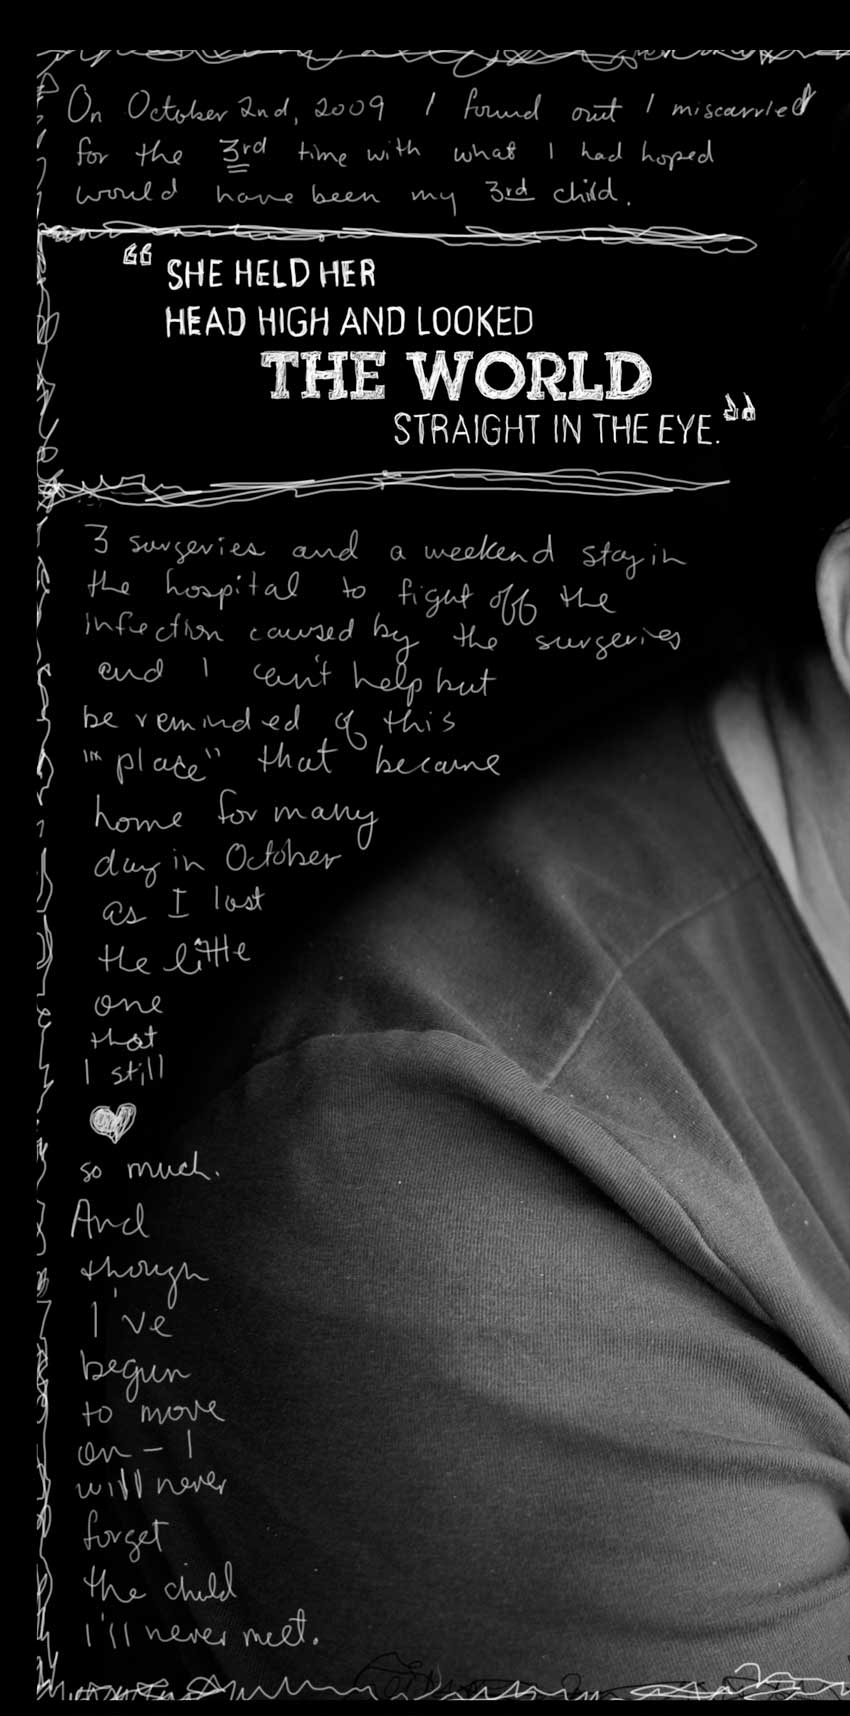 On October 2nd, 2009 I found out I miscarried
for the 3rd time with what I had hoped
would have been my 3rd child.
“ SHE HELD HER
HEAD HIGH AND LOOKED
THE WORLD
STRAIGHT IN THE EYE.”
3 surgeries and a weekend stay in
the hospital to fight off the
infection caused by the surgeries
and I can't help but
be reminded of this
"place" that became
home for many
day in October
as I lost
the little
one
that
I still
so much.
And
though
I've
begun
to move
on - I
will never
forget
the child
I'll never meet.